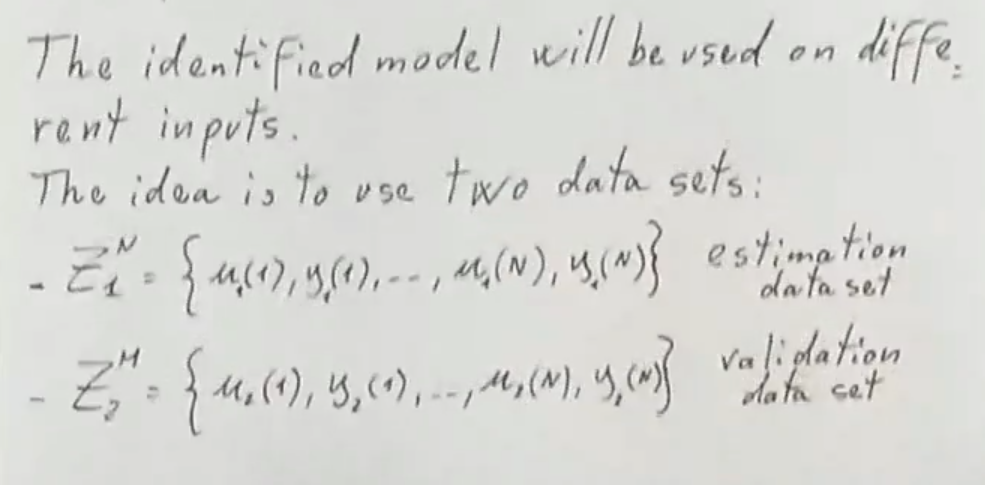 The identified model will be used on diffe-
rent inputs.
The idea is to use two data sets:
- Z₁ᴺ = { u₁(1), y₁(1), ..., u₁(N), y₁(N)} estimation data set
- Z₂ᴹ = { u₂(1), y₂(1), ..., u₂(N), y₂(N)} validation data set